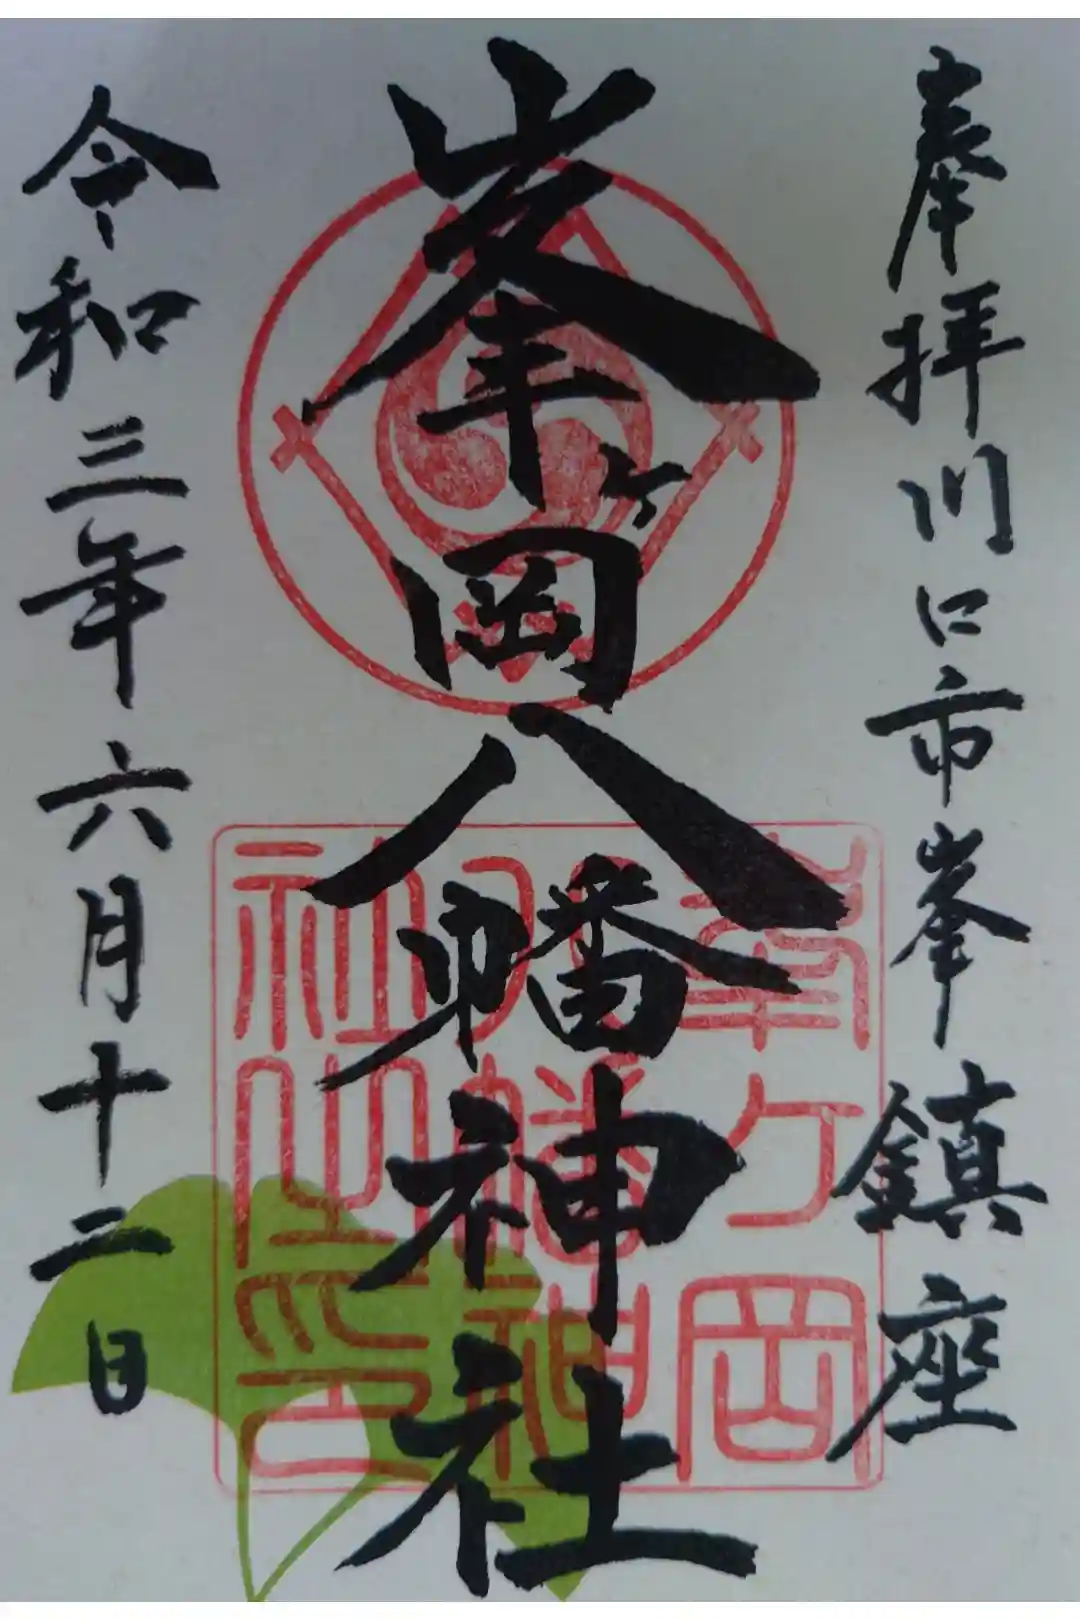 奉拝川口市峯鎮座
峯ヶ岡八幡神社
令和三年六月十二日
峯ヶ岡
八幡神
社之印